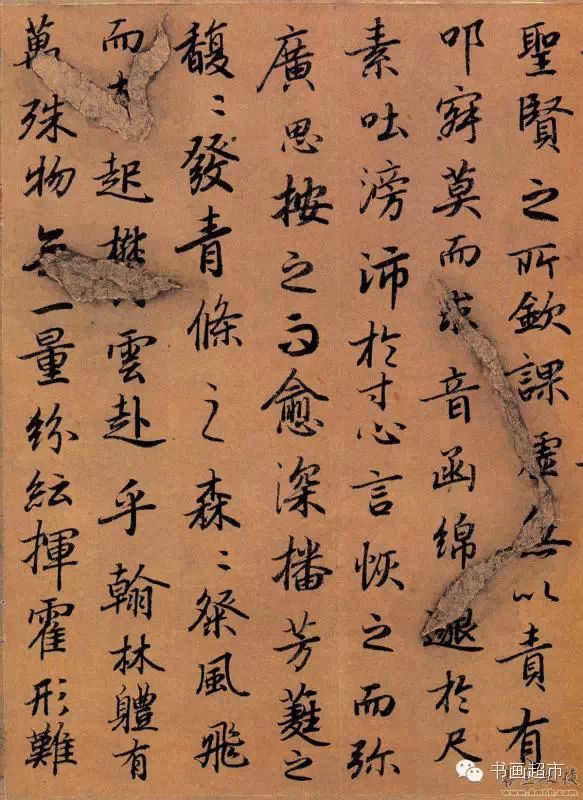 聖賢之所欽課虛無以責有
叩寂莫而求音函綿邈於尺
素吐滂沛於寸心言恢之而弥
廣思按之而愈深播芳蕤之
馥〻發青條之森〻粲風飛
而起雲赴乎翰林軆有
萬殊物一量紛紜揮霍形難
书画超市